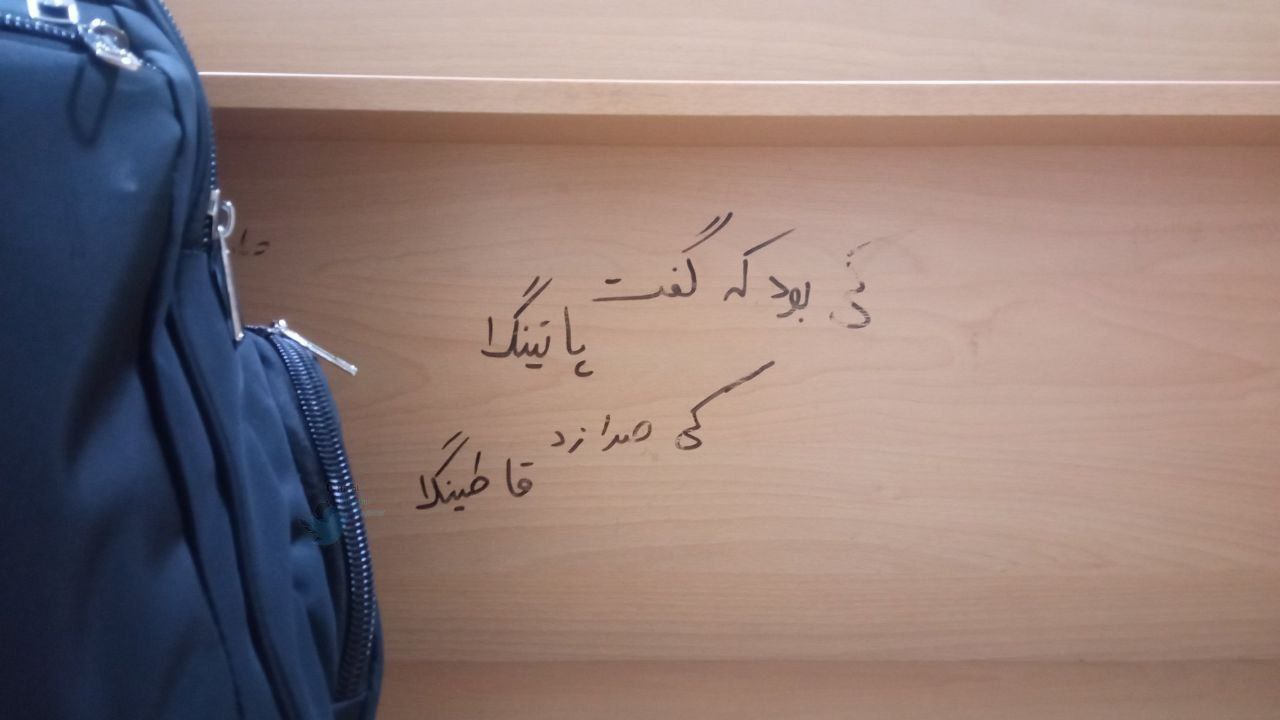 کی بود که گفت
پاتینگلا
کی صدا زد
قاطینگلا